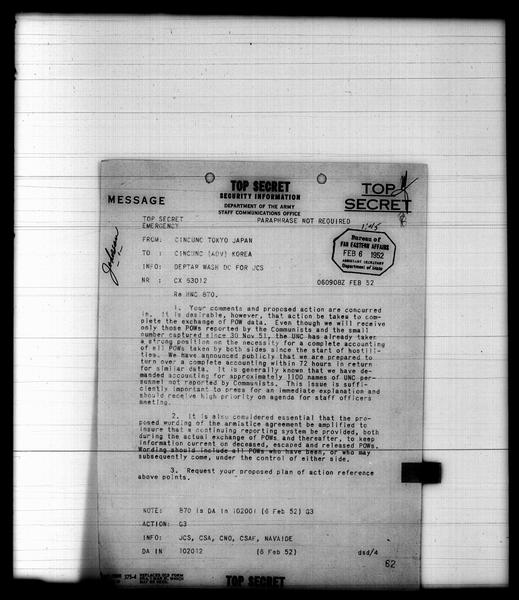 TOP SECRET
SECURITY INFORMATION
DEPARTMENT OF THE ARMY
STAFF COMMUNICATIONS OFFICE
MESSAGE
TOP
SECRET
TOP SECRET
EMERGENCY
PARAPHRASE NOT REQUIRED
FROM: CINCUNC TOKYO JAPAN
TO : CINCUNC (ADV) KOREA
INFO: DEPTAR WASH DC FOR JCS
NR : CX 63012
060908Z FEB 52
Bureau of
FAR EASTERN AFFAIRS
FEB 6 1952
ASSISTANT SECRETARY
Department of State
Re HNC 870.
1. Your comments and proposed action are concurred
in. It is desirable, however, that action be taken to com-
plete the exchange of POW data. Even though we will receive
only those POWs reported by the Communists and the small
number captured since 30 Nov 51, the UNC has already taken
a strong position on the necessity for a complete accounting
of all POWs taken by both sides since the start of hostili-
ties. We have announced publicly that we are prepared to
turn over a complete accounting within 72 hours in return
for similar data. It is generally known that we have de-
manded accounting for approximately 1100 names of UNC per-
sonnel not reported by Communists. This issue is suffi-
ciently important to press for an immediate explanation and
should receive high priority on agenda for staff officers
meeting.
2. It is also considered essential that the pro-
posed wording of the armistice agreement be amplified to
insure that a continuing reporting system be provided, both
during the actual exchange of POWs and thereafter, to keep
information current on deceased, escaped and released POWs.
Wording should include all POWs who have been, or who may
subsequently come, under the control of either side.
3. Request your proposed plan of action reference
above points.
NOTE: 870 is DA IN 102001 (6 Feb 52) G3
ACTION: G3
INFO: JCS, CSA, CNO, CSAF, NAVAIDE
DA IN 102012 (6 Feb 52) dsd/4
62
375-4
REPLACES OCS FORM
TOP SECRET